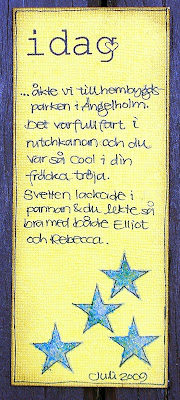 idag
...åkte vi till hembygds
parken i Ängelholm.
Det var full fart i
rutchkanan och du
var så cool i din
fräcka tröja.
Svetten lackade i
pannan & du lekte så
bra med både Elliot
och Rebecca.
Juli 2009